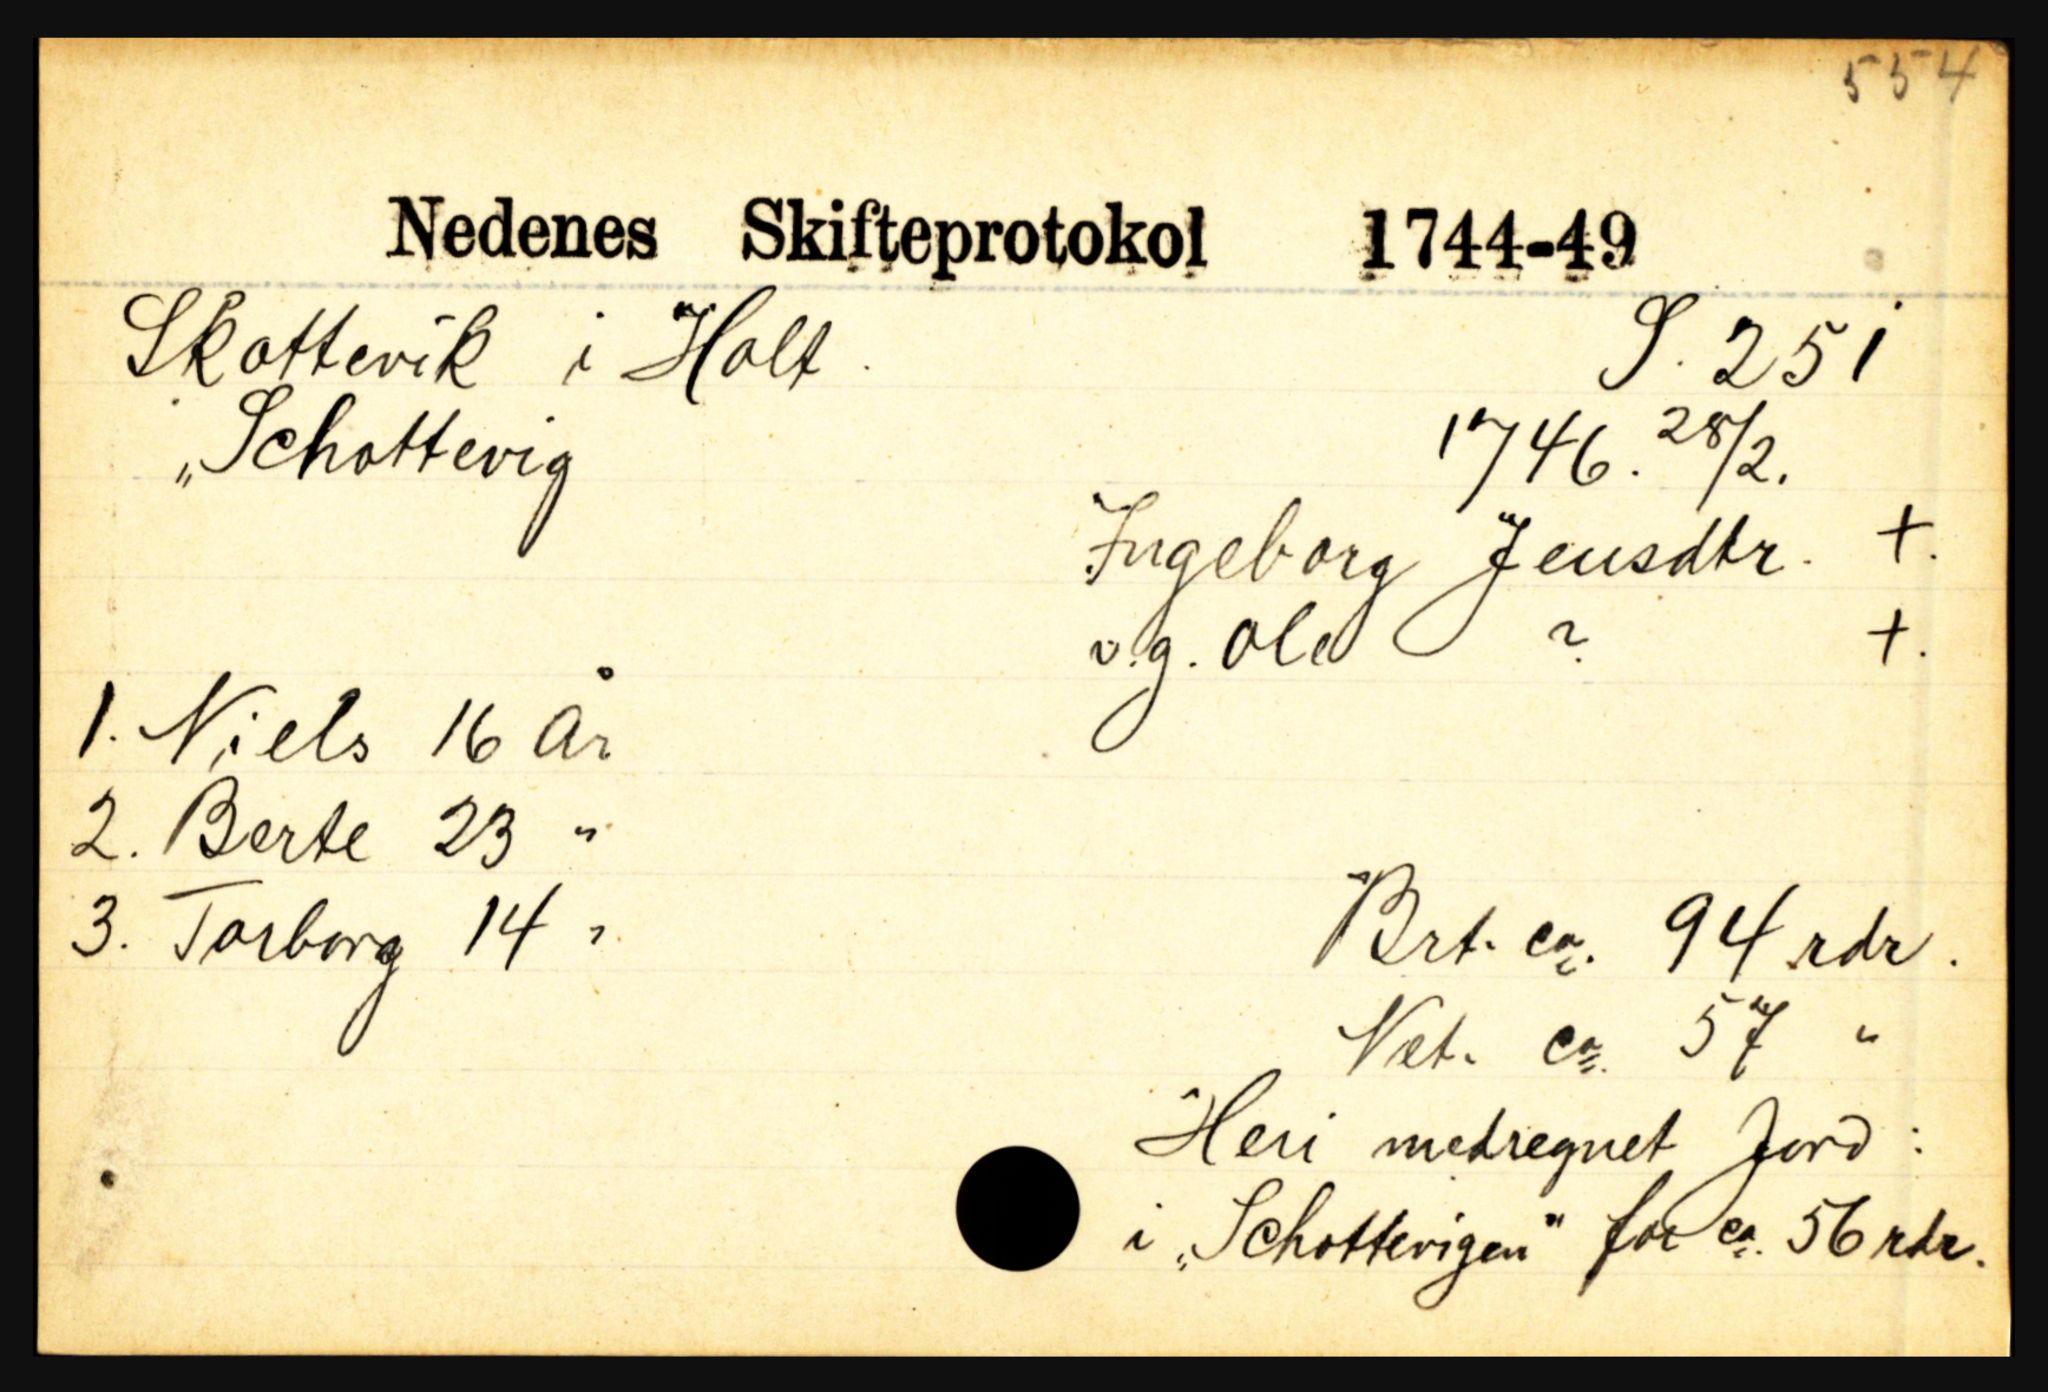 554
Nedenes Skifteprotokol 1744-49
Skottevik i Holt. S. 251
„Schottevig 1746. 28/2.
Ingeborg Jensdtr. +.
v.g. Ole ? +.
1. Niels 16 År
2. Berte 23 "
3. Torborg 14 " Brt. ca. 94 rdr.
Net. ca. 57 "
Heri medregnet Jord:
i „Schottevigen" for ca. 56 rdr.